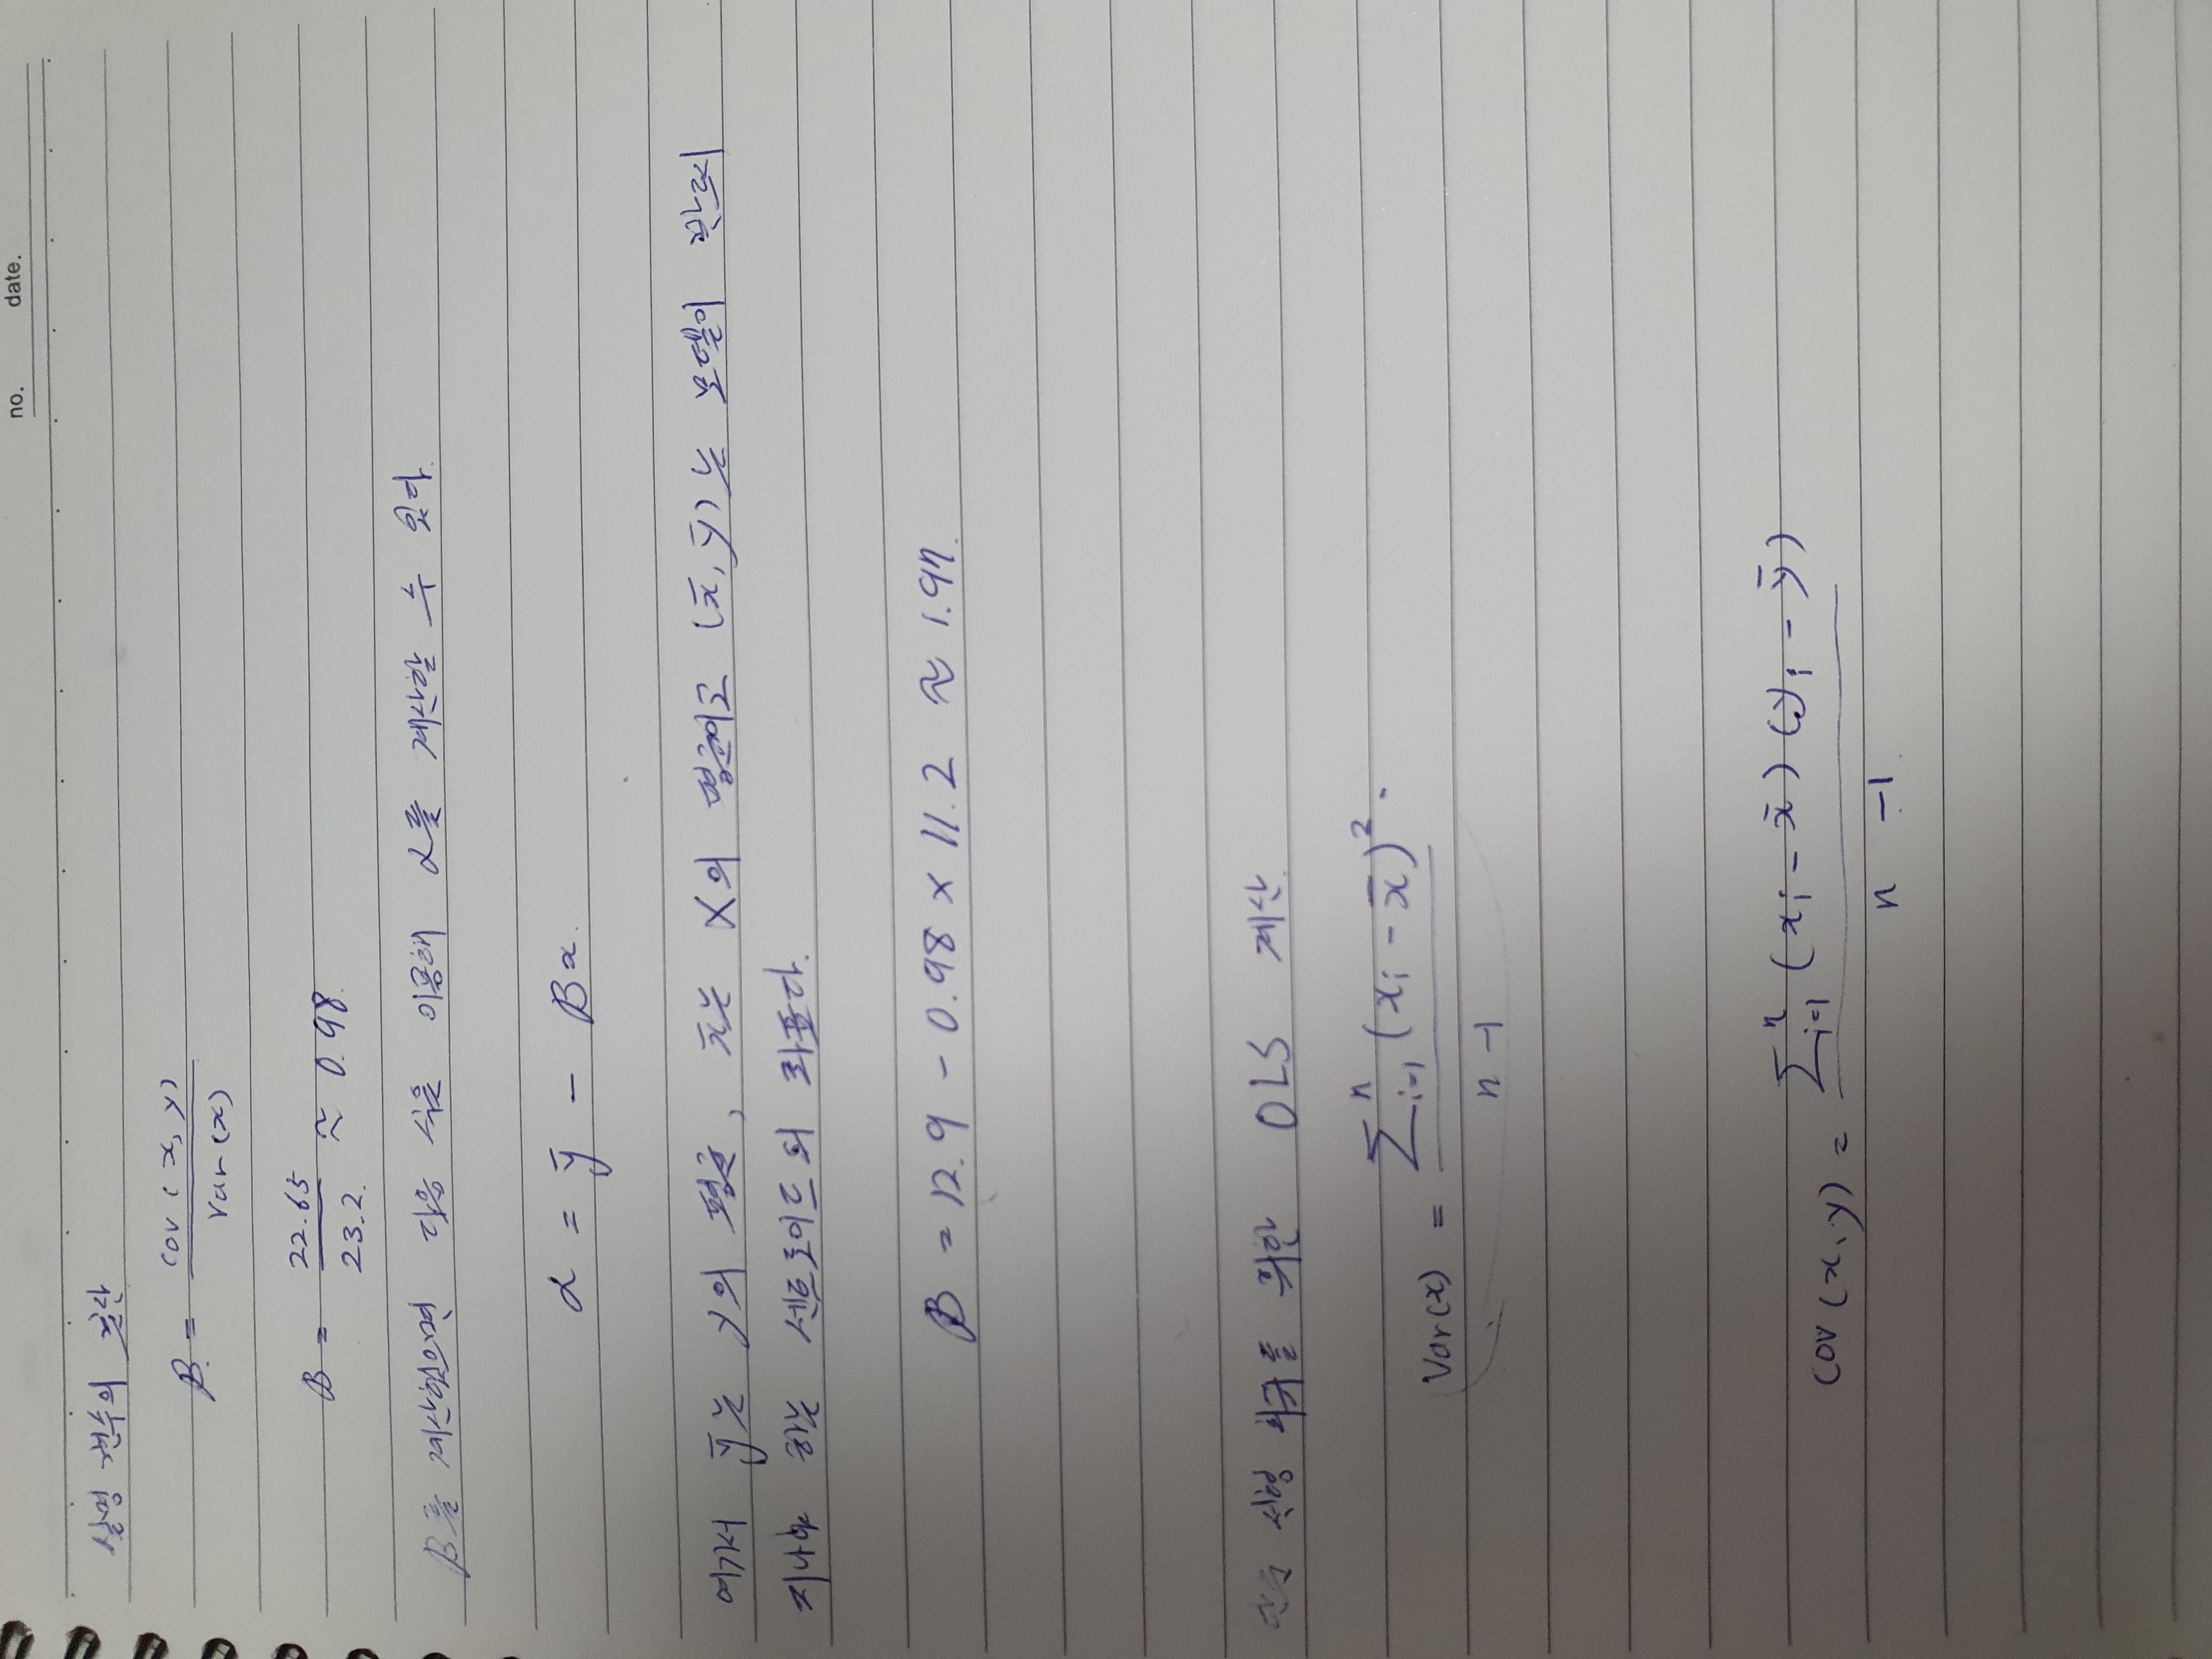 no. date.
설명 변수의 분산
β = cov(x, y) / Var(x)
β = 22.65 / 23.2. ≈ 0.98.
β를 계산했으면 다음 식을 이용해 α를 계산할 수 있다.
α = ȳ - βx.
여기서 ȳ는 y의 평균, x̄는 X의 평균이고 (x̄, ȳ)는 모델이 반드시
지나야 하는 센트로이드의 좌표다.
β = 12.9 - 0.98 × 11.2 ≈ 1.97.
단순 선형 회귀를 위한 OLS 계산.
Var(x) = ∑ⁿᵢ₌₁ (xᵢ - x̄)² / n - 1
cov(x, y) = ∑ⁿᵢ₌₁ (xᵢ - x̄)(yᵢ - ȳ) / n - 1